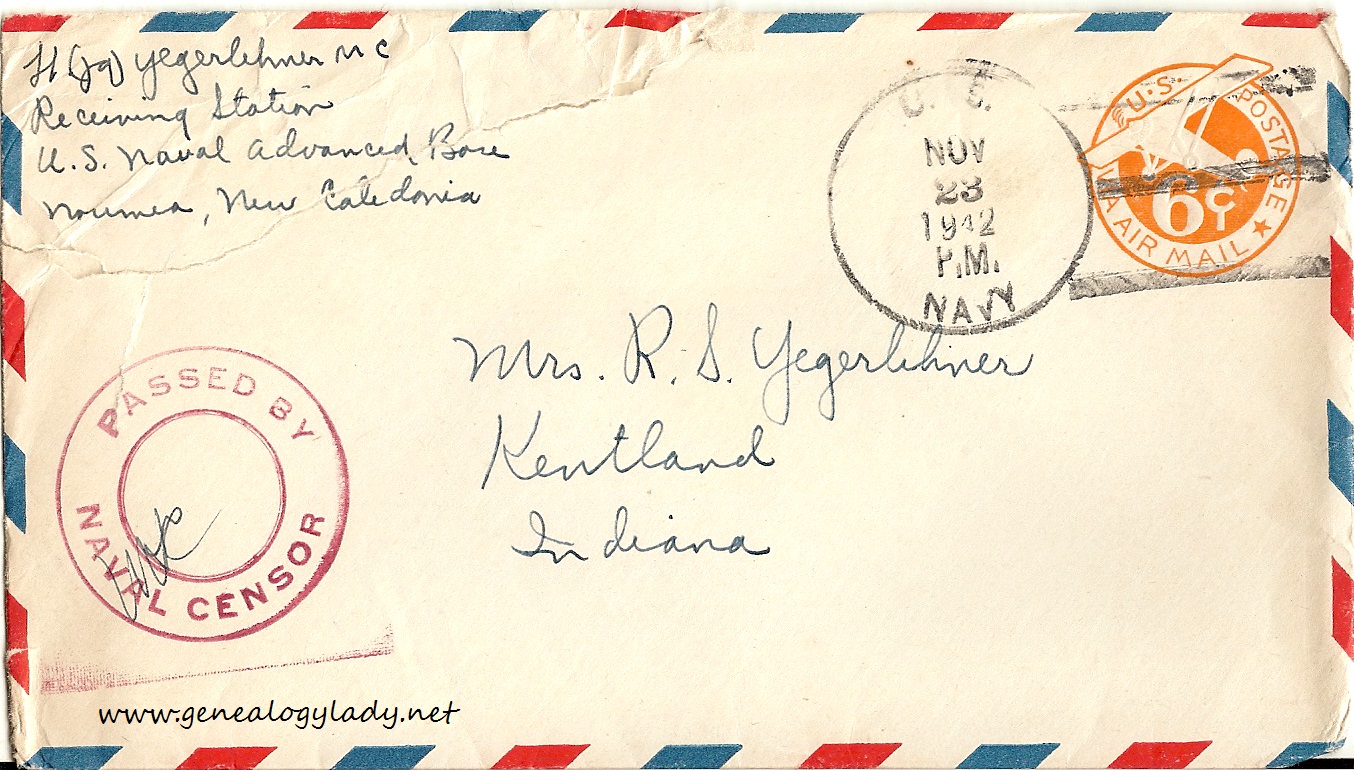 Lt (jg) Yegerlehner M C
Receiving Station
U.S. Naval Advanced Base
Noumea, New Caledonia
U. S.
NOV
23
1942
P.M.
NAVY
U.S. POSTAGE
6¢
VIA AIR MAIL
Mrs. R. S. Yegerlehner
Kentland
Indiana
PASSED BY
NAVAL CENSOR
www.genealogylady.net